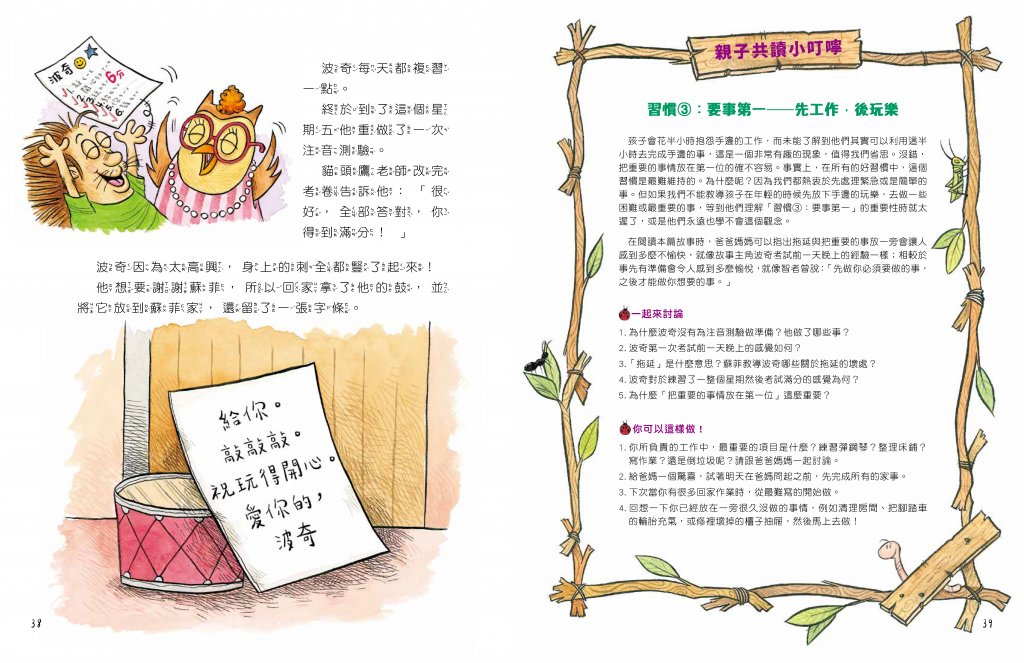 波奇
6分
波奇每天都複習
一點。
終於到了這個星
期五他重做了一次
注音測驗。
貓頭鷹老師改完
考卷告訴他：「很
好，全部答對，你
得到滿分！」
波奇因為太高興，身上的刺全都豎了起來！
他想要謝謝蘇菲，所以回家拿了他的鼓，並
將它放到蘇菲家，還留了一張字條。
給你。
敲敲敲。
祝玩得開心。
愛你的，
波奇
38
親子共讀小叮嚀
習慣③：要事第一——先工作，後玩樂
孩子會花半小時抱怨手邊的工作，而未能了解到他們其實可以利用這半
小時去完成手邊的事，這是一個非常有趣的現象，值得我們省思。沒錯，
把重要的事情放在第一位的確不容易。事實上，在所有的好習慣中，這個
習慣是最難維持的。為什麼呢？因為我們都熱衷於先處理緊急或是簡單的
事。但如果我們不能教導孩子在年輕的時候先放下手邊的玩樂，去做一些
困難或最重要的事，等到他們理解「習慣③：要事第一」的重要性時就太
遲了，或是他們永遠也學不會這個觀念。
在閱讀本篇故事時，爸爸媽媽可以指出拖延與把重要的事放一旁會讓人
感到多麼不愉快，就像故事主角波奇考試前一天晚上的經驗一樣；相較於
事先有準備會令人感到多麼愉悅，就像智者曾說：「先做你必須要做的事，
之後才能做你想要的事。」
一起來討論
1. 為什麼波奇沒有為注音測驗做準備？他做了哪些事？
2. 波奇第一次考試前一天晚上的感覺如何？
3.「拖延」是什麼意思？蘇菲教導波奇哪些關於拖延的壞處？
4. 波奇對於練習了一整個星期然後考試滿分的感覺為何？
5. 為什麼「把重要的事情放在第一位」這麼重要？
你可以這樣做！
1. 你所負責的工作中，最重要的項目是什麼？練習彈鋼琴？整理床鋪？
寫作業？還是倒垃圾呢？請跟爸爸媽媽一起討論。
2. 給爸媽一個驚喜，試著明天在爸媽問起之前，先完成所有的家事。
3. 下次當你有很多回家作業時，從最難寫的開始做。
4. 回想一下你已經放在一旁很久沒做的事情，例如清理房間、把腳踏車
的輪胎充氣，或修裡壞掉的櫃子抽屜，然後馬上去做！
39